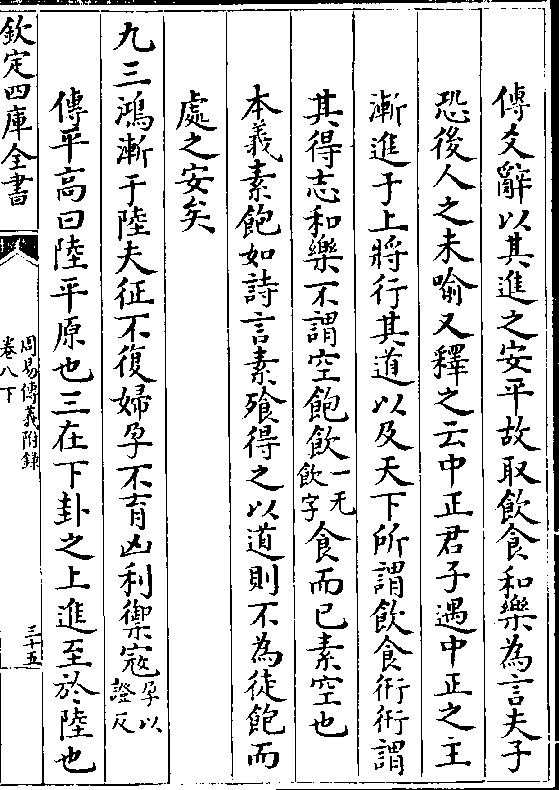 傳爻辭以其進之安平故取飲食和樂為言夫子
恐後人之未喻又釋之云中正君子遇中正之主
漸進于上將行其道以及天下所謂飲食衎衎謂
其得志和樂不謂空飽飲一无飲字食而已素空也
本義素飽如詩言素飱得之以道則不為徒飽而
處之安矣
九三鴻漸于陸夫征不復婦孕不育凶利禦寇孕以證反
傳平高曰陸平原也三在下卦之上進至於陸也
欽定四庫全書
周易傳義附錄
卷八下
三十五